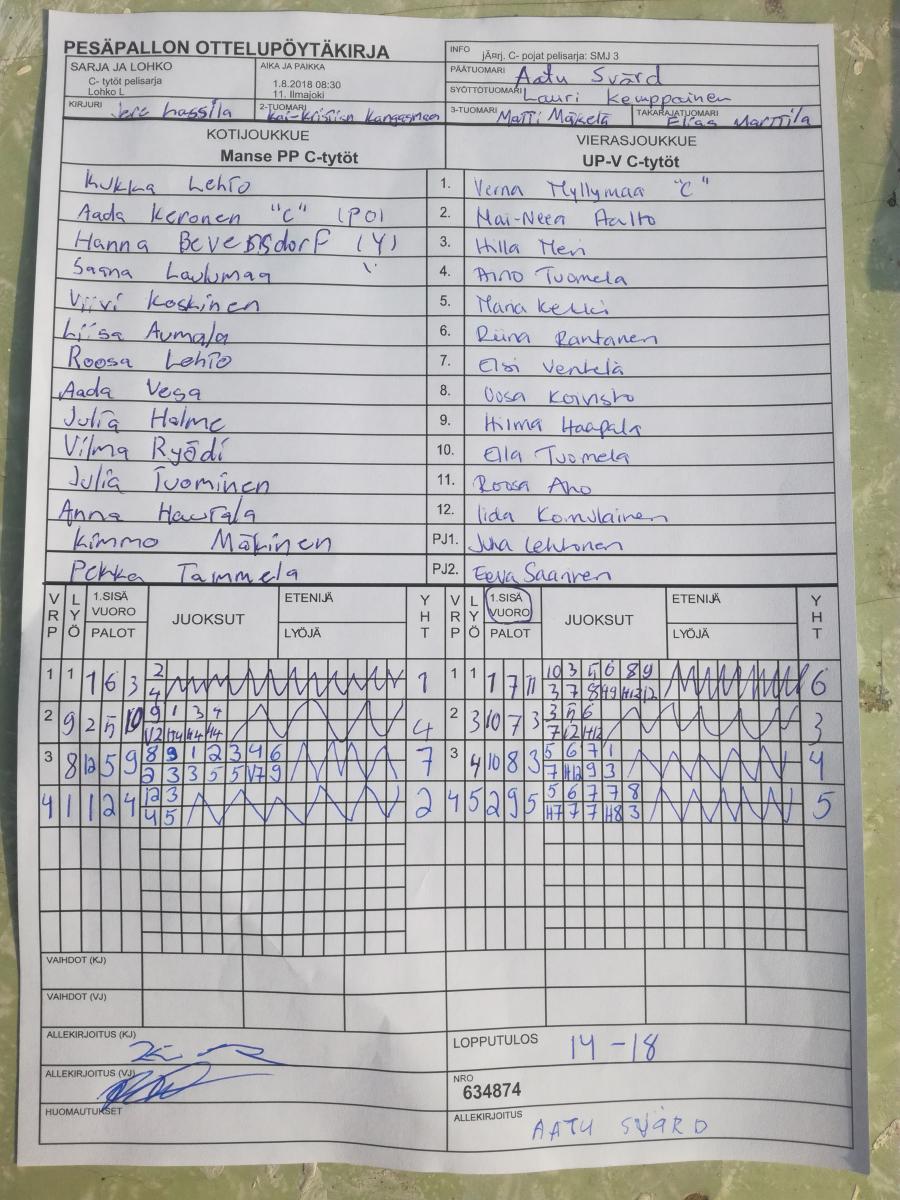 PESÄPALLON OTTELUPÖYTÄKIRJA
INFO jÄ¤rj. C- pojat pelisarja: SMJ 3
SARJA JA LOHKO
C- tytöt pelisarja
Lohko L
AIKA JA PAIKKA
1.8.2018 08:30
11. Ilmajoki
PÄÄTUOMARI Aatu Svärd
SYÖTTÖTUOMARI Lauri Kemppainen
KIRJURI Jere Lassila
2-TUOMARI Kai-Kristian Kangasmaa
3-TUOMARI Matti Mäkelä
TAKARAJATUOMARI Elias Marttila
KOTIJOUKKUE
Manse PP C-tytöt
VIERASJOUKKUE
UP-V C-tytöt
Kukka Lehto 1. Verna Myllymaa "C"
Aada Keronen "C" (PO) 2. Mai-Neea Aalto
Hanna Beversdorf (Y) 3. Hilla Meri
Saana Laulumaa 4. Aino Tuomela
Viivi Koskinen 5. Maria Kekki
Liisa Aumala 6. Riina Rantanen
Roosa Lehto 7. Elsi Ventelä
Aada Vesa 8. Oosa Koivisto
Julia Halme 9. Hilma Haapala
Vilma Ryödi 10. Ella Tuomela
Julia Tuominen 11. Roosa Aho
Anna Hautala 12. Iida Komulainen
Kimmo Mäkinen PJ1. Juha Lehtonen
Pekka Tammela PJ2. Eeva Saarinen
VRP LYÖ 1.SISÄ VUORO PALOT JUOKSUT ETENIJÄ LYÖJÄ YHT VRP LYÖ 1.SISÄ VUORO PALOT JUOKSUT ETENIJÄ LYÖJÄ YHT
1 1 1 6 3 2 1 1 1 1 7 11 10 3 5 6 8 9 6
4 3 7 8 H9 H12 12
2 9 2 5 10 9 1 3 4 4 2 3 10 7 3 3 5 6 3
V2 H4 H4 H4 7 12 H12
3 8 12 5 9 8 9 1 2 3 4 6 7 3 4 10 8 3 5 6 7 1 4
2 3 3 5 5 V7 9 7 H12 9 3
4 1 1 2 4 12 3 2 4 5 2 9 5 5 6 7 7 8 5
4 5 H7 7 7 H8 3
VAIHDOT (KJ)
VAIHDOT (VJ)
ALLEKIRJOITUS (KJ)
LOPPUTULOS 14 - 18
ALLEKIRJOITUS (VJ)
NRO
634874
HUOMAUTUKSET
ALLEKIRJOITUS
AATU SVÄRD